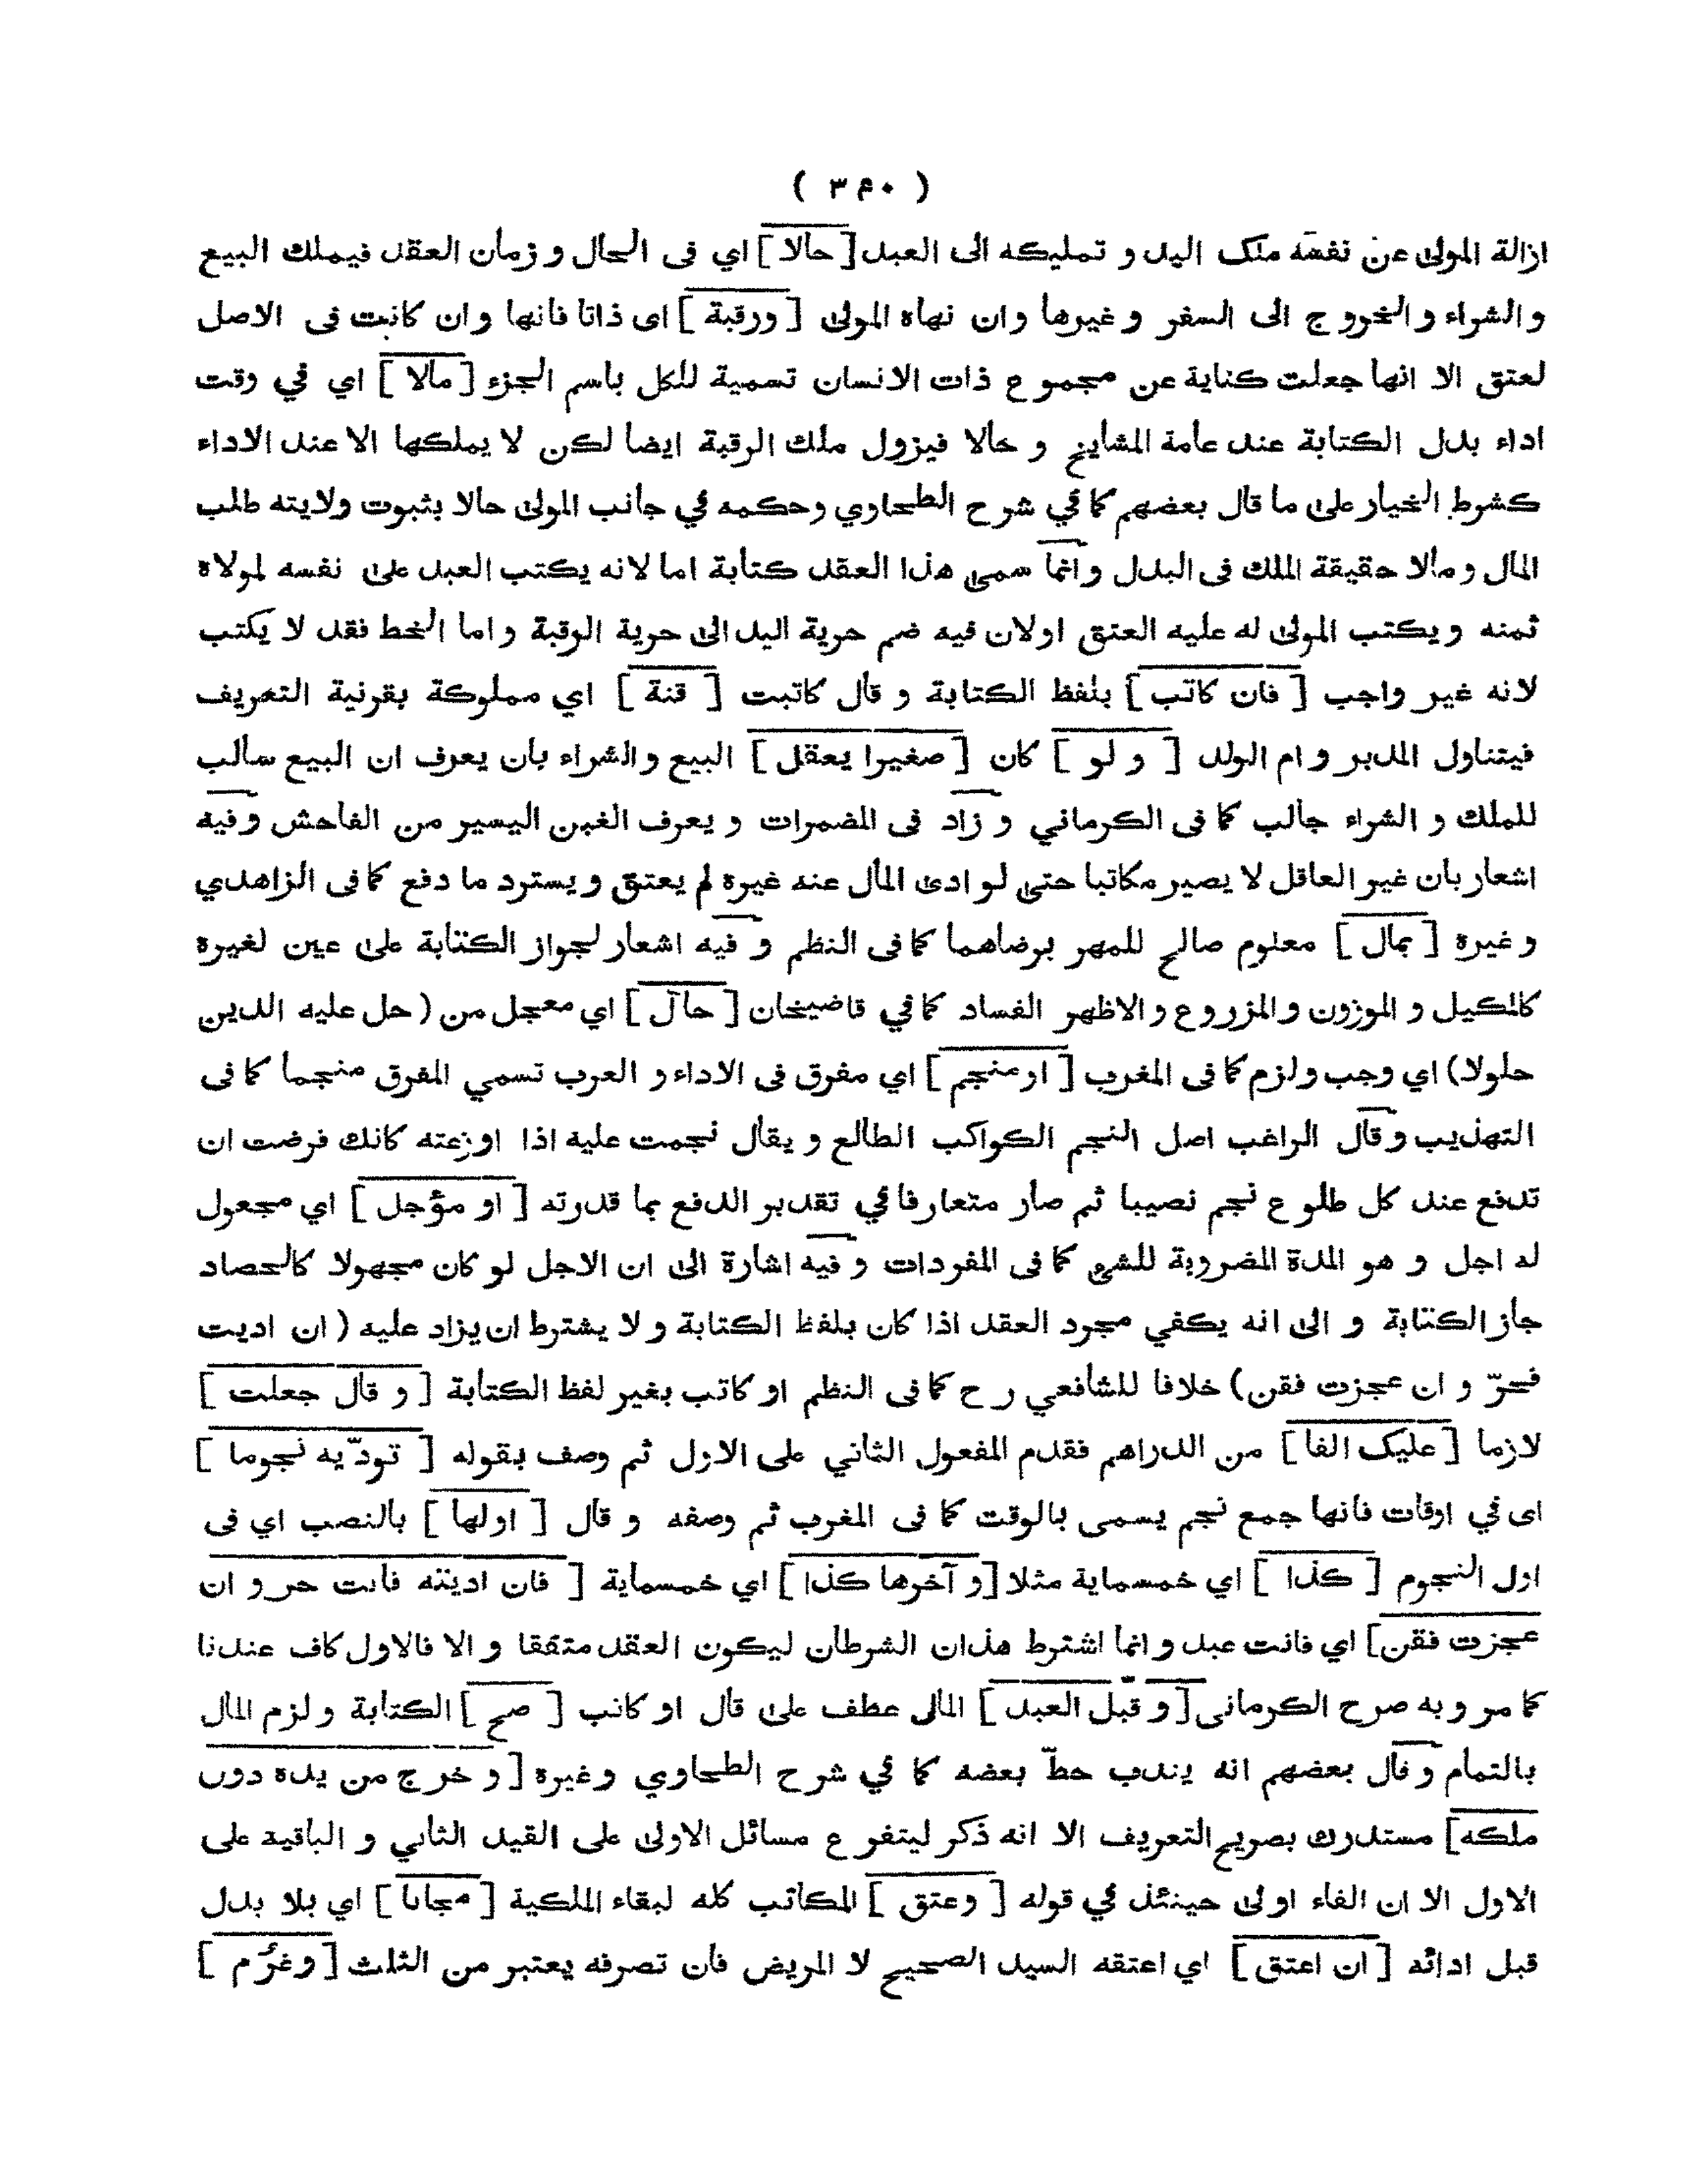 ( ٣۴٠ )
ازالة المولى عن نفسه ملك اليد و تمليكه الى العبد [ حالا ] اي فى الحال و زمان العقد فيملك البيع
و الشراء و الخروج الى السفر و غيرها و ان نهاه المولى [ ورقبة ] اى ذاتا فانها و ان كانت فى الاصل
لعتق الا انها جعلت كناية عن مجموع ذات الانسان تسمية للكل باسم الجزء [ مآلا ] اي في وقت
اداء بدل الكتابة عند عامة المشايخ و حالا فيزول ملك الرقبة ايضا لكن لا يملكها الا عند الاداء
كشرط الخيار على ما قال بعضهم كما في شرح الطحاوي وحكمه في جانب المولى حالا بثبوت ولايته طلب
المال و مآلا حقيقة الملك فى البدل و انما سمى هذا العقد كتابة اما لانه يكتب العبد على نفسه لمولاه
ثمنه و يكتب المولى له عليه العتق اولان فيه ضم حرية اليد الى حرية الوقبة و اما الخط فقد لا يكتب
لانه غير واجب [ فان كاتب ] بلفظ الكتابة و قال كاتبت [ قنة ] اي مملوكة بقرنية التعريف
فيتناول المدبر و ام الولد [ و لو ] كان [ صغيرا يعقل ] البيع و الشراء بان يعرف ان البيع سالب
للملك و الشراء جالب كما فى الكرماني و زاد فى المضمرات و يعرف الغبن اليسير من الفاحش و فيه
اشعار بان غير العاقل لا يصير مكاتبا حتى لو ادى المال عنه غيره لم يعتق و يسترد ما دفع كما فى الزاهدي
و غيره [ بمال ] معلوم صالح للمهر برضاهما كما فى النظم و فيه اشعار لجواز الكتابة على عين لغيره
كالمكيل و الموزون و المزروع و الاظهر الفساد كما في قاضيخان [ حآل ] اي معجل من ( حل عليه الدين
حلولا) اي وجب و لزم كما فى المغرب [ او منجم ] اي مفرق فى الاداء و العرب تسمي المفرق منجما كما فى
التهذيب و قال الراغب اصل النجم الكواكب الطالع و يقال نجمت عليه اذا اوزعته كانك فرضت ان
تدفع عند كل طلوع نجم نصيبا ثم صار متعارفا في تقدير الدفع بما قدرته [ او مؤجل ] اي مجعول
له اجل و هو المدة المضروبة للشي كما فى المفردات و فيه اشارة الى ان الاجل لو كان مجهولا كالحصاد
جاز الكتابة و الى انه يكفي مجرد العقد اذا كان بلفظ الكتابة و لا يشترط ان يزاد عليه ( ان اديت
فحرّ و ان عجزت فقن) خلافا للشافعي ر ح كما فى النظم او كاتب بغير لفظ الكتابة [ و قال جعلت ]
لازما [ عليك الفا ] من الدراهم فقدم المفعول الثاني على الاول ثم وصف بقوله [ تودّيه نجوما ]
اى في اوقات فانها جمع نجم يسمى بالوقت كما فى المغرب ثم وصفه و قال [ اولها ] بالنصب اي فى
اول النجوم [ كذا ] اي خمسماية مثلا [ و آخرها كذا ] اي خمسماية [ فان اديته فانت حر و ان
عجزت فقن ] اي فانت عبد و انما اشترط هذان الشرطان ليكون العقد متفقا و الا فالاول كاف عندنا
كما مر و به صرح الكرمانى [ و قبل العبد ] المال عطف على قال او كاتب [ صح ] الكتابة و لزم المال
بالتمام و قال بعضهم انه يندب حطّ بعضه كما في شرح الطحاوي و غيره [ و خرج من يده دون
ملكه ] مستدرك بصريح التعريف الا انه ذكر ليتفرع مسائل الاولى على القيد الثاني و الباقية على
الاول الا ان الفاء اولى حينئذ في قوله [ وعتق ] المكاتب كله لبقاء الملكية [ مجانا ] اي بلا بدل
قبل ادائه [ ان اعتق ] اي اعتقه السيد الصحيح لا المريض فان تصرفه يعتبر من الثلث [ وغرّم ]